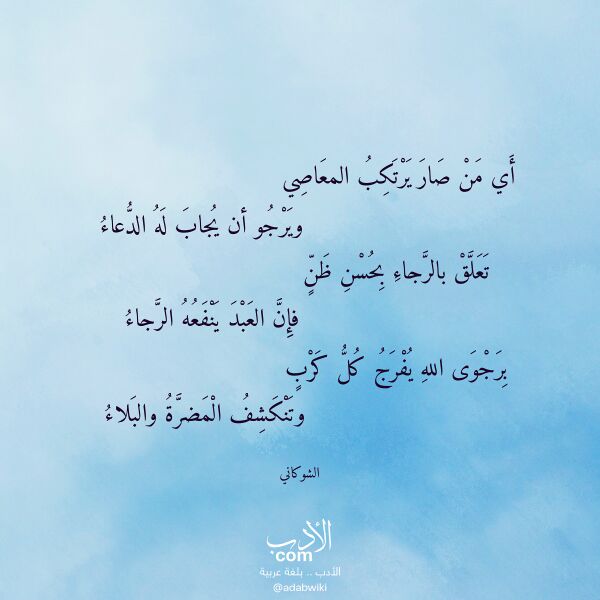 أَي مَنْ صَارَ يَرْتَكِبُ المعَاصِي
ويَرْجُو أن يُجابَ لَهُ الدُّعاءُ
تَعَلَّقْ بالرَّجاءِ بِحُسْنِ ظَنٍّ
فإِنَّ العَبْدَ يَنْفَعُهُ الرَّجاءُ
بِرَجْوَى اللهِ يُفْرَجُ كُلُّ كَرْبٍ
وتَنْكَشِفُ الْمَضرَّةُ والبَلاءُ
الشوكاني
الأدب
com
الأدب .. بلغة عربية
@adabwiki